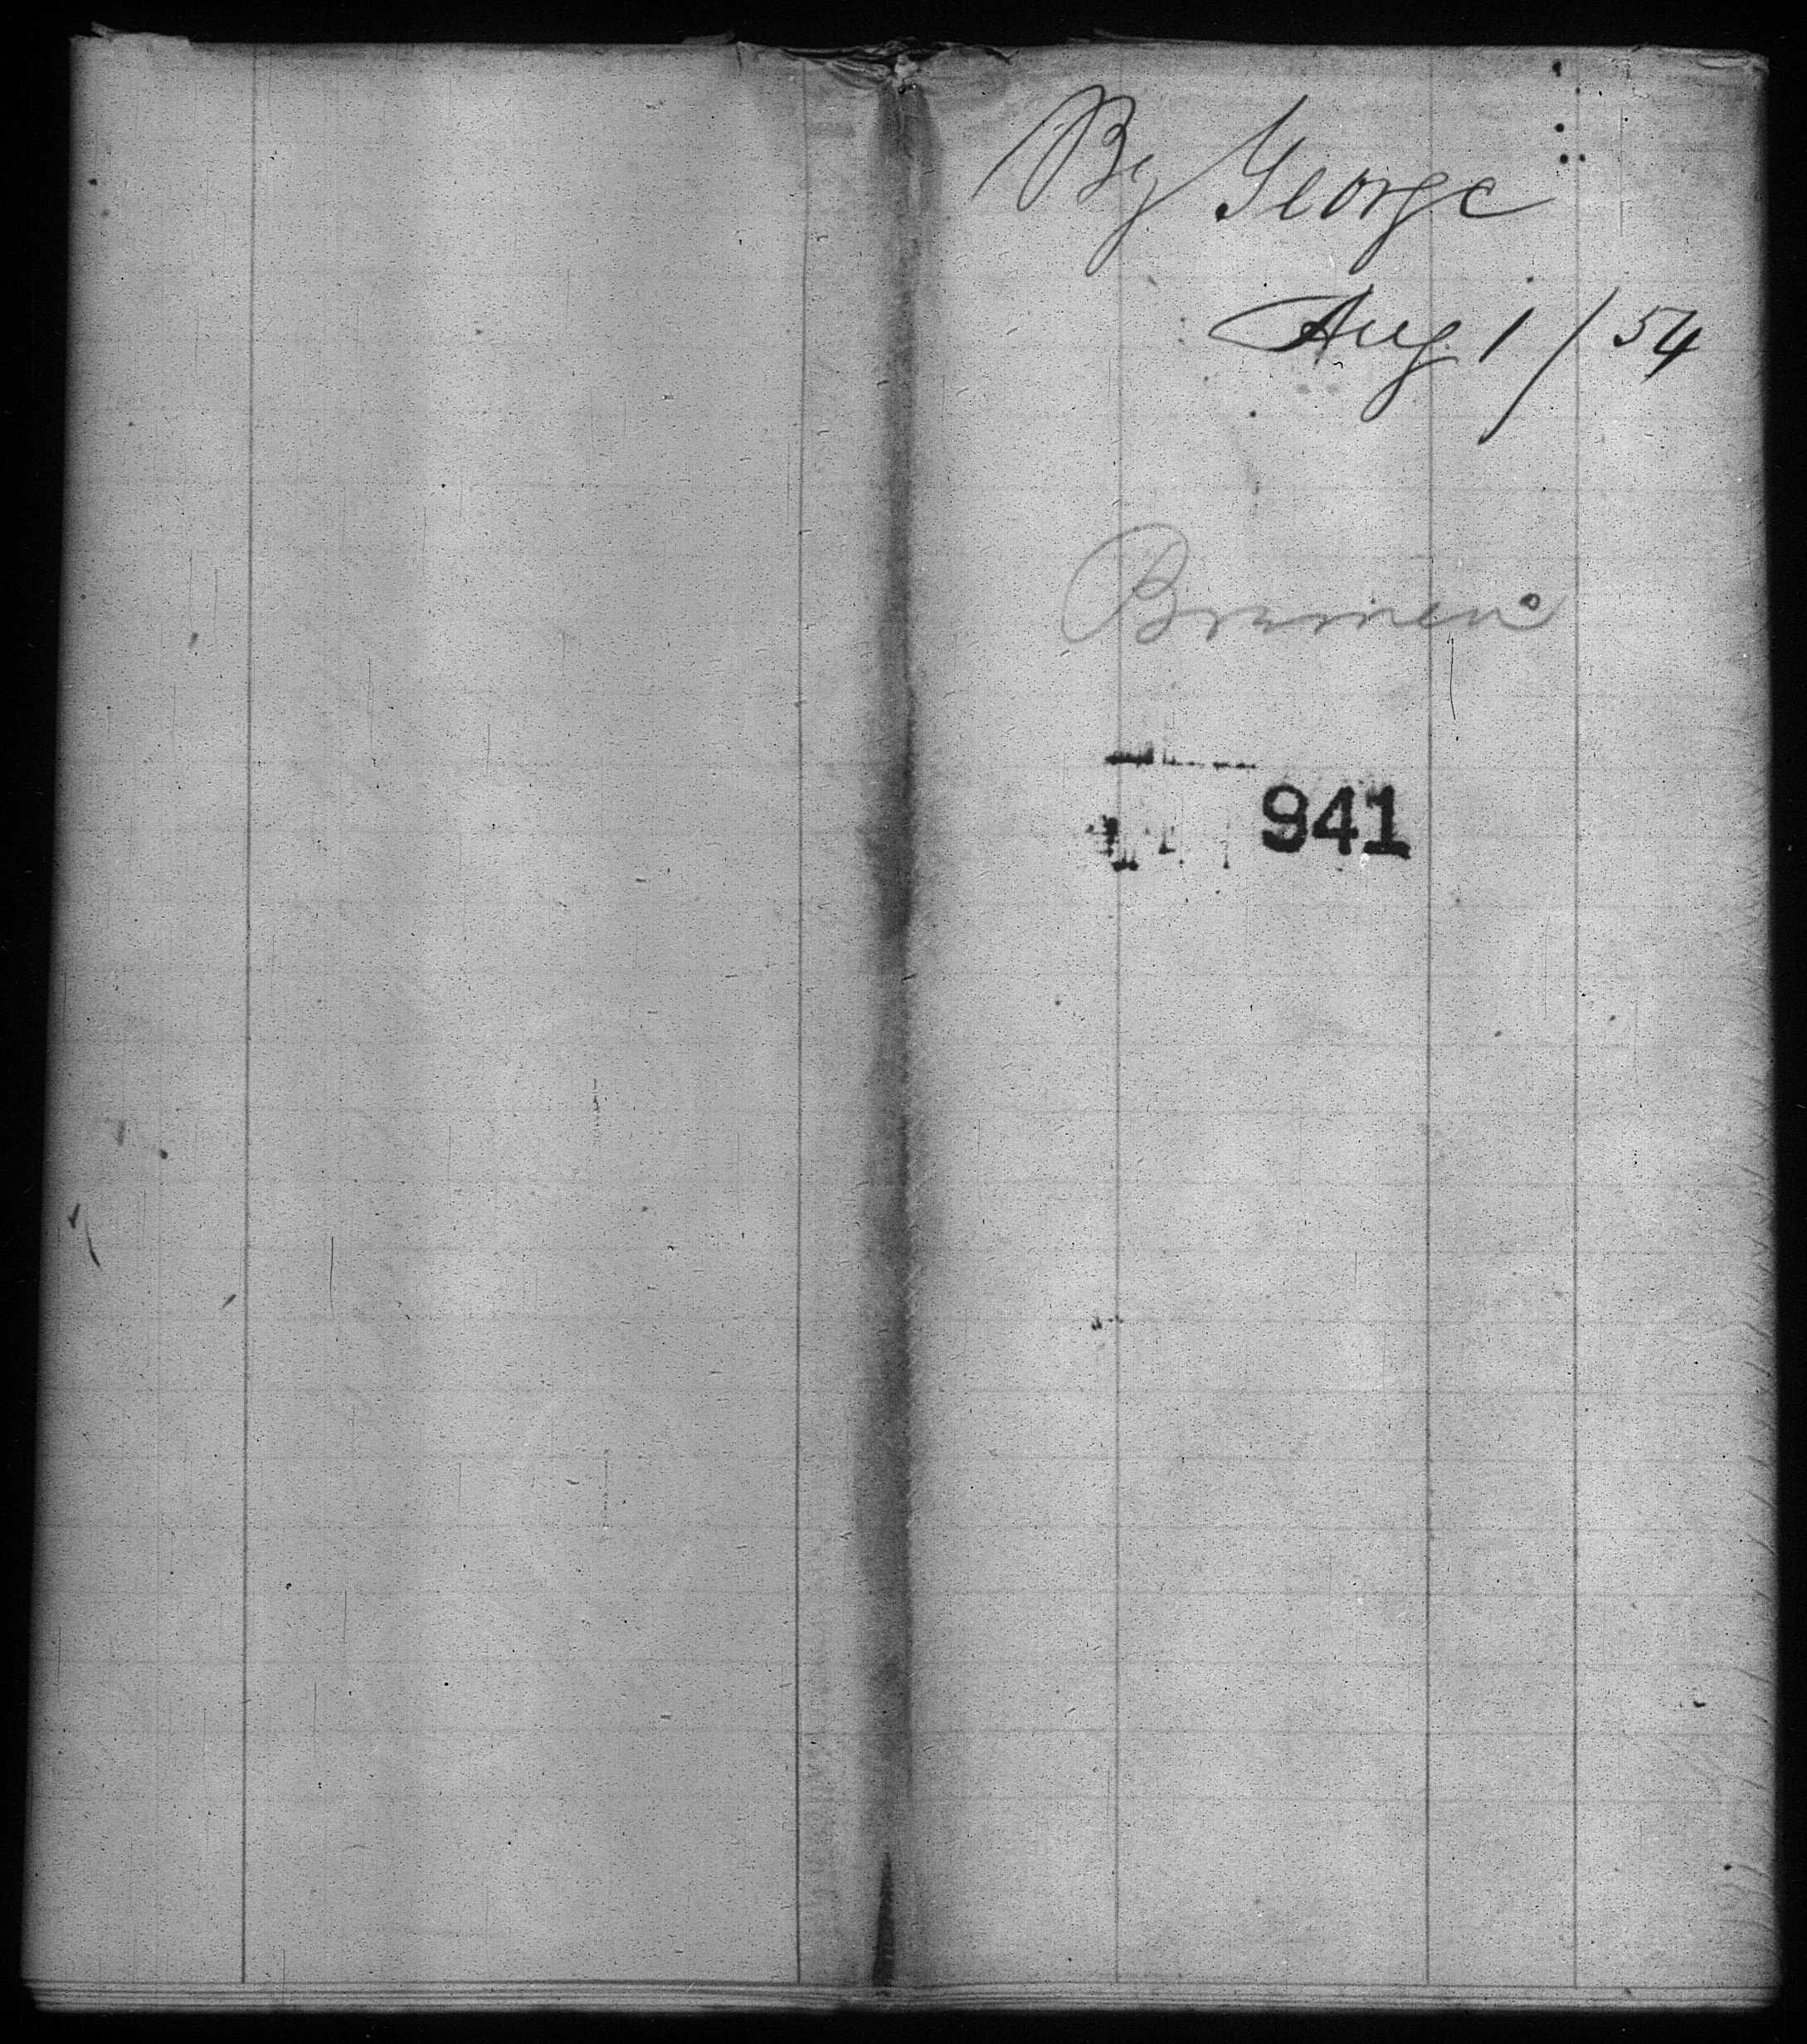 By George
Aug 1/54
Bremen
941